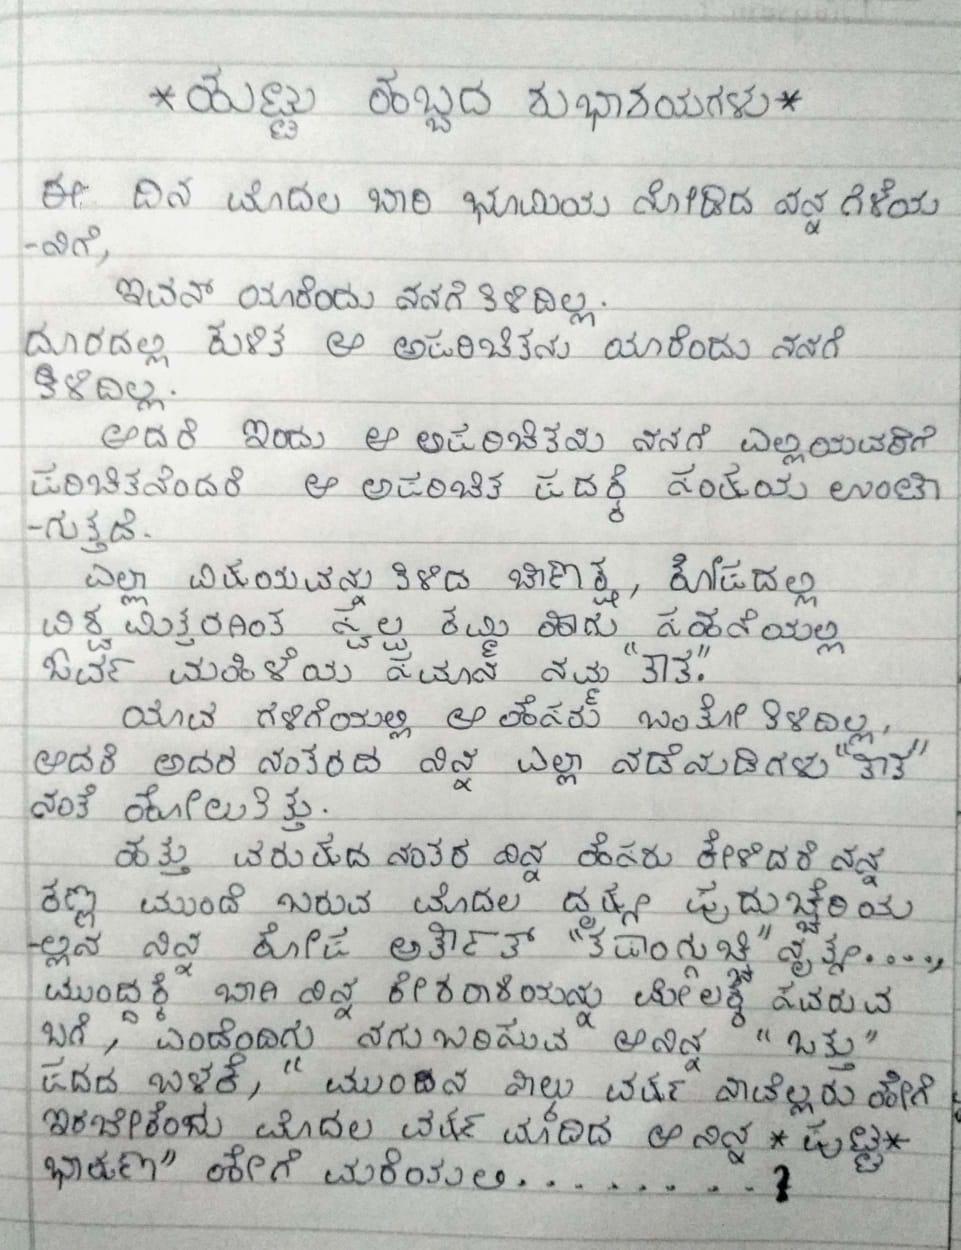 *ಹುಟ್ಟು ಹಬ್ಬದ ಶುಭಾಶಯಗಳು*
ಈ ದಿನ ಮೊದಲ ಬಾರಿ ಭೂಮಿಯ ನೋಡಿದ ನನ್ನ ಗೆಳೆಯ
-ನಿಗೆ,
ಇವನ್ ಯಾರೆಂದು ನನಗೆ ತಿಳಿದಿಲ್ಲ.
ದೂರದಲ್ಲಿ ಕುಳಿತ ಆ ಅಪರಿಚಿತನು ಯಾರೆಂದು ನನಗೆ
ತಿಳಿದಿಲ್ಲ.
ಆದರೆ ಇಂದು ಆ ಅಪರಿಚಿತನು ನನಗೆ ಎಲ್ಲಿಯವರೆಗೆ
ಪರಿಚಿತನೆಂದರೆ ಆ ಅಪರಿಚಿತ ಪದಕ್ಕೆ ಸಂಶಯ ಉಂಟಾ
-ಗುತ್ತದೆ.
ಎಲ್ಲಾ ವಿಷಯವನ್ನು ತಿಳಿದ ಚಾಣಕ್ಷ, ಕೋಪದಲ್ಲಿ
ವಿಶ್ವಮಿತ್ರರಿಗಿಂತ ಸ್ವಲ್ಪ ಕಮ್ಮಿ ಹಾಗು ಸಹನೆಯಲ್ಲಿ
ಓರ್ವ ಮಹಿಳೆಯ ಸಮಾನ ನಮ್ಮ "ತಾತ".
ಯಾವ ಗಳಿಗೆಯಲ್ಲಿ ಆ ಹೆಸರು ಬಂತೋ ತಿಳಿದಿಲ್ಲ,
ಆದರೆ ಅದರ ನಂತರದ ನಿನ್ನ ಎಲ್ಲಾ ನಡೆನುಡಿಗಳು "ತಾತ"
ನಂತೆ ಹೋಲುತಿತ್ತು.
ಹತ್ತು ವರುಷದ ನಂತರ ನಿನ್ನ ಹೆಸರು ಕೇಳಿದರೆ ನನ್ನ
ಕಣ್ಣ ಮುಂದೆ ಬರುವ ಮೊದಲ ದೃಷ್ಯ ಪುದುಚ್ಚೆರಿಯ
-ಲ್ಲನ ನಿನ್ನ ಕೋಪ ಅರ್ತಾತ್ "ತಪಾಂಗುಚ್ಚಿ" ನೃತ್ಯ....,
ಮುಂದ್ದಕ್ಕೆ ಬಾಗಿ ನಿನ್ನ ಕೇಶರಾಶಿಯನ್ನು ಮೇಲಕ್ಕೆ ಸವರುವ
ಬಗೆ, ಎಂದೆಂದಿಗು ನಗುಬರಿಸುವ ಆ ನಿನ್ನ "ಒತ್ತು"
ಪದದ ಬಳಕೆ, "ಮುಂದಿನ ನಾಲ್ಕು ವರ್ಷ ನಾವೆಲ್ಲರು ಹೇಗೆ
ಇರಬೇಕೆಂದು ಮೊದಲ ವರ್ಷ ಮಾಡಿದ ಆ ನಿನ್ನ *ಪುಟ್ಟ*
ಭಾಷಣ" ಹೇಗೆ ಮರೆಯಲಿ.........?